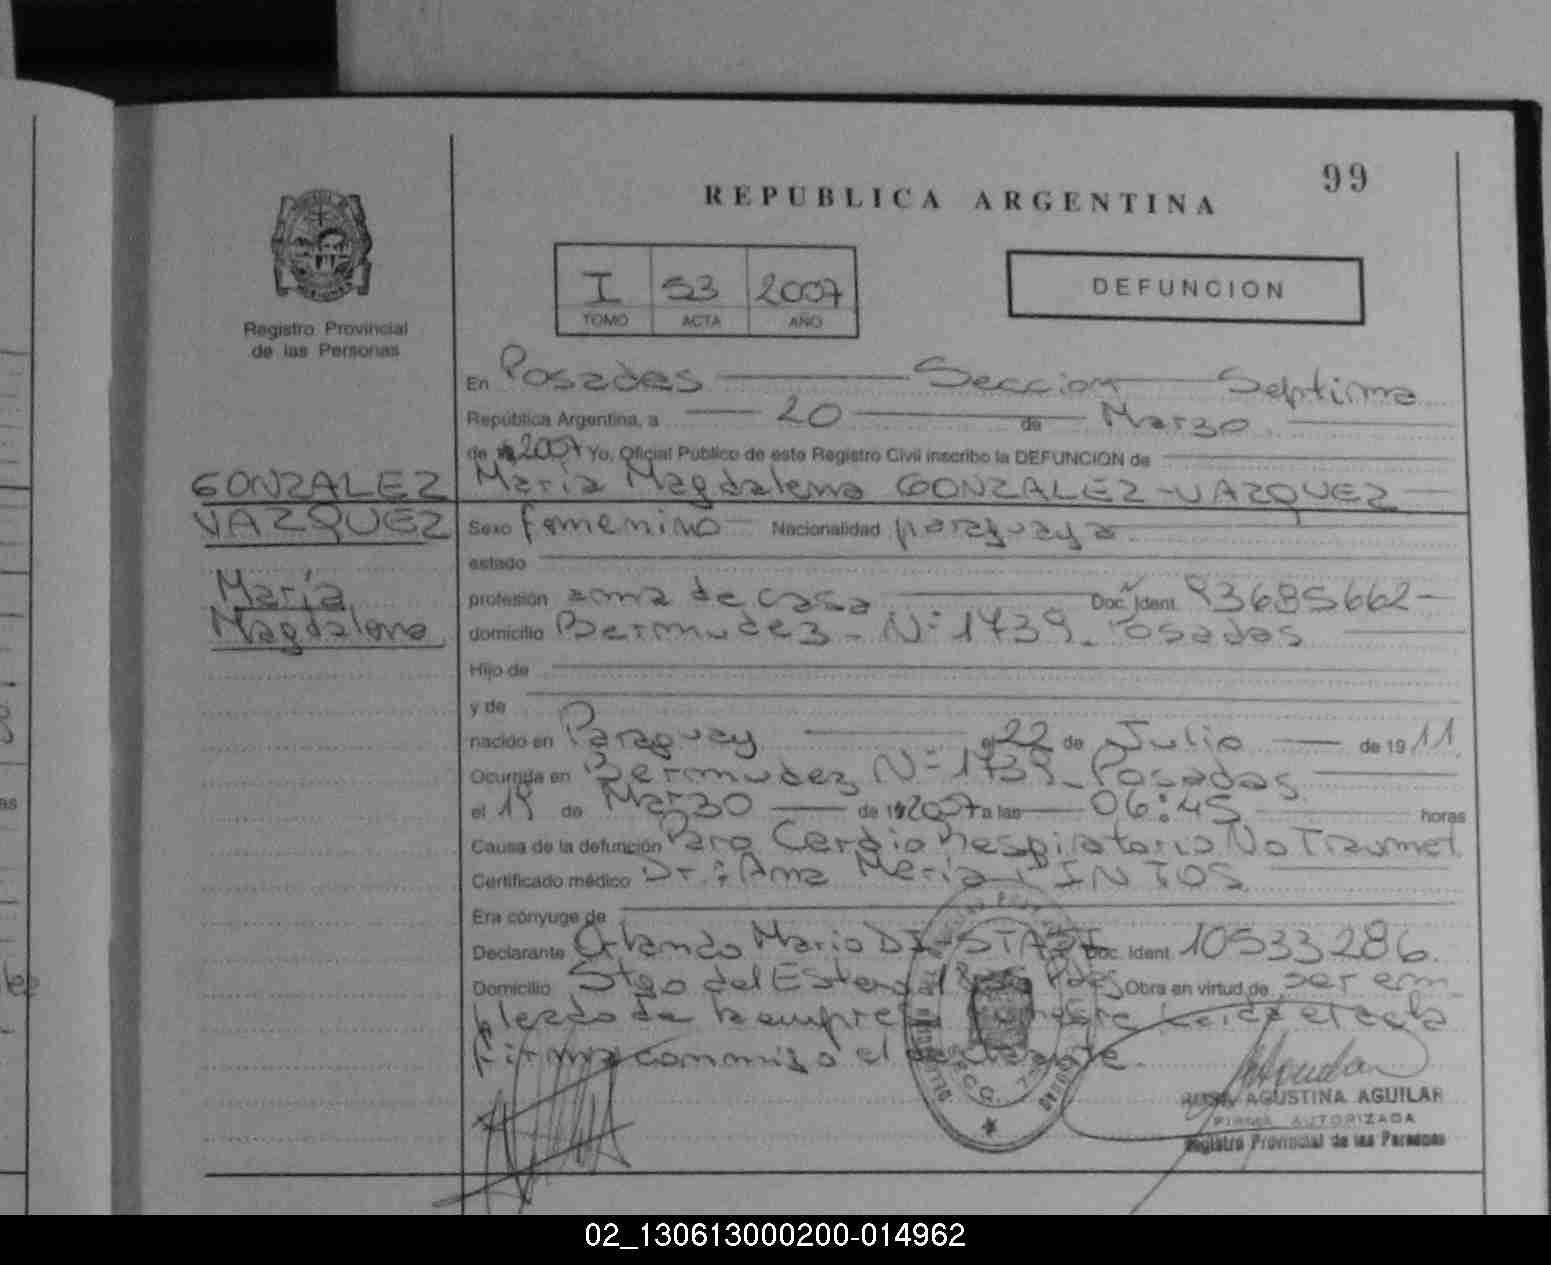 99
REPUBLICA ARGENTINA
I 53 2007
TOMO ACTA AÑO
DEFUNCION
Registro Provincial
de las Personas
En Posadas Seccion Septima
República Argentina, a 20 de Marzo
de 2007 Yo, Oficial Público de este Registro Civil inscribo la DEFUNCION de
GONZALEZ María Magdalena GONZALEZ-VAZQUEZ
VAZQUEZ Sexo femenino Nacionalidad paraguaya
estado
María profesión ama de casa Doc. Ident. 93685662
Magdalena domicilio Bermudez - Nº 1739 - Posadas
Hijo de
y de
nacido en Paraguay el 22 de Julio de 1911
Ocurrida en Bermudez Nº 1739 - Posadas
el 19 de Marzo de 2007 a las 06:45 horas
Causa de la defunción Paro Cardio Respiratorio No Traumat.
Certificado médico Dr.: Ana María PINTOS
Era cónyuge de
Declarante Orlando Mario DI-STASI Doc. Ident. 10533286.
Domicilio Stgo del Estero Pdas Obra en virtud de ser em-
pleado de la empresa leida el acta
firma conmigo el declarante.
ROSA AGUSTINA AGUILAR
FIRMA AUTORIZADA
Registro Provincial de las Personas
02_130613000200-014962